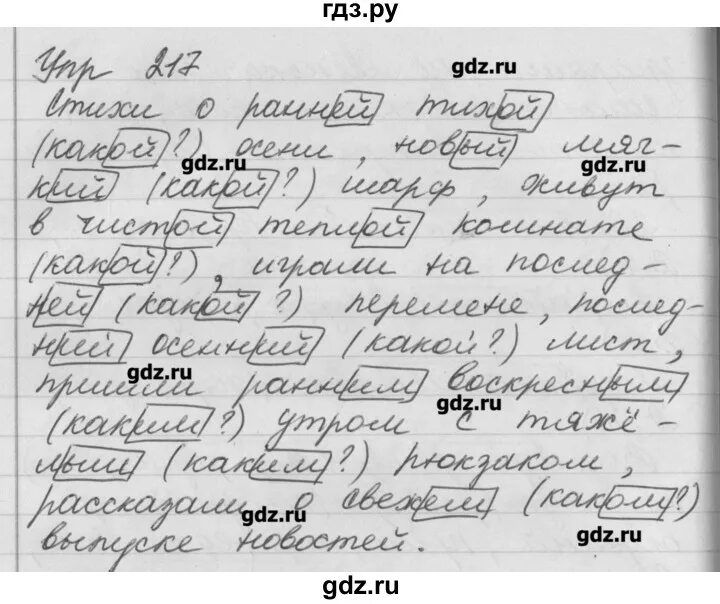 гдз.ру
Упр 217
gdz.ru
Стихи о ранней тихой
(какой?) осени, новый мяг-
gdz.ru gdz.ru
кий (какой?) шарф, живут
в чистой теплой комнате
(какой?), играли на послед-
ней (какой?) перемене, послед-
ний осенний (какой?) лист,
gdz.ru
пришли ранним воскресным
gdz.ru
(каким?) утром с тяжё-
лым (каким?) рюкзаком,
рассказали о свежем (каком?)
gdz.ru
выпуске новостей.
gdz.ru
gdz.ru